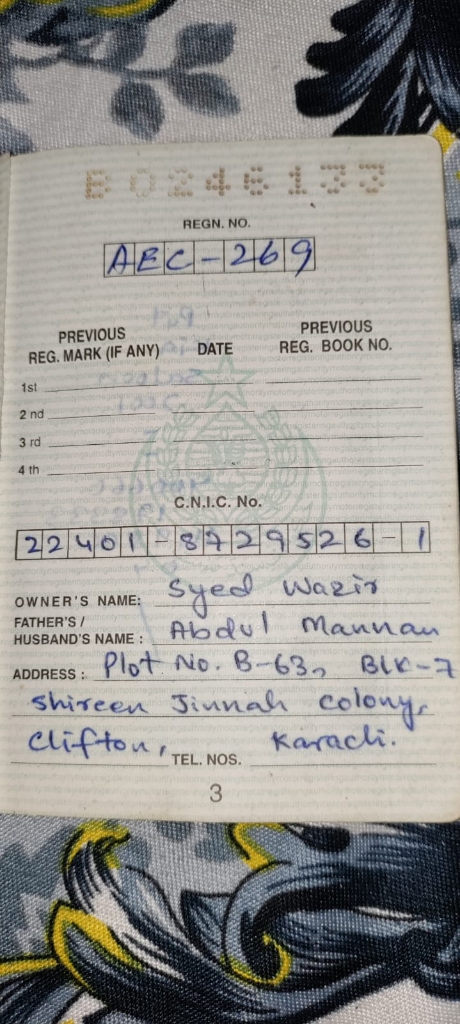 B0246133
REGN. NO.
AEC-269
PREVIOUS REG. MARK (IF ANY) DATE PREVIOUS REG. BOOK NO.
1st
2 nd
3 rd
4 th
C.N.I.C. No.
22401-8729526-1
OWNER'S NAME: Syed Wazir
FATHER'S / HUSBAND'S NAME : Abdul Mannan
ADDRESS : Plot No. B-63, Blk-7
Shireen Jinnah Colony,
Clifton, Karachi.
TEL. NOS.
3